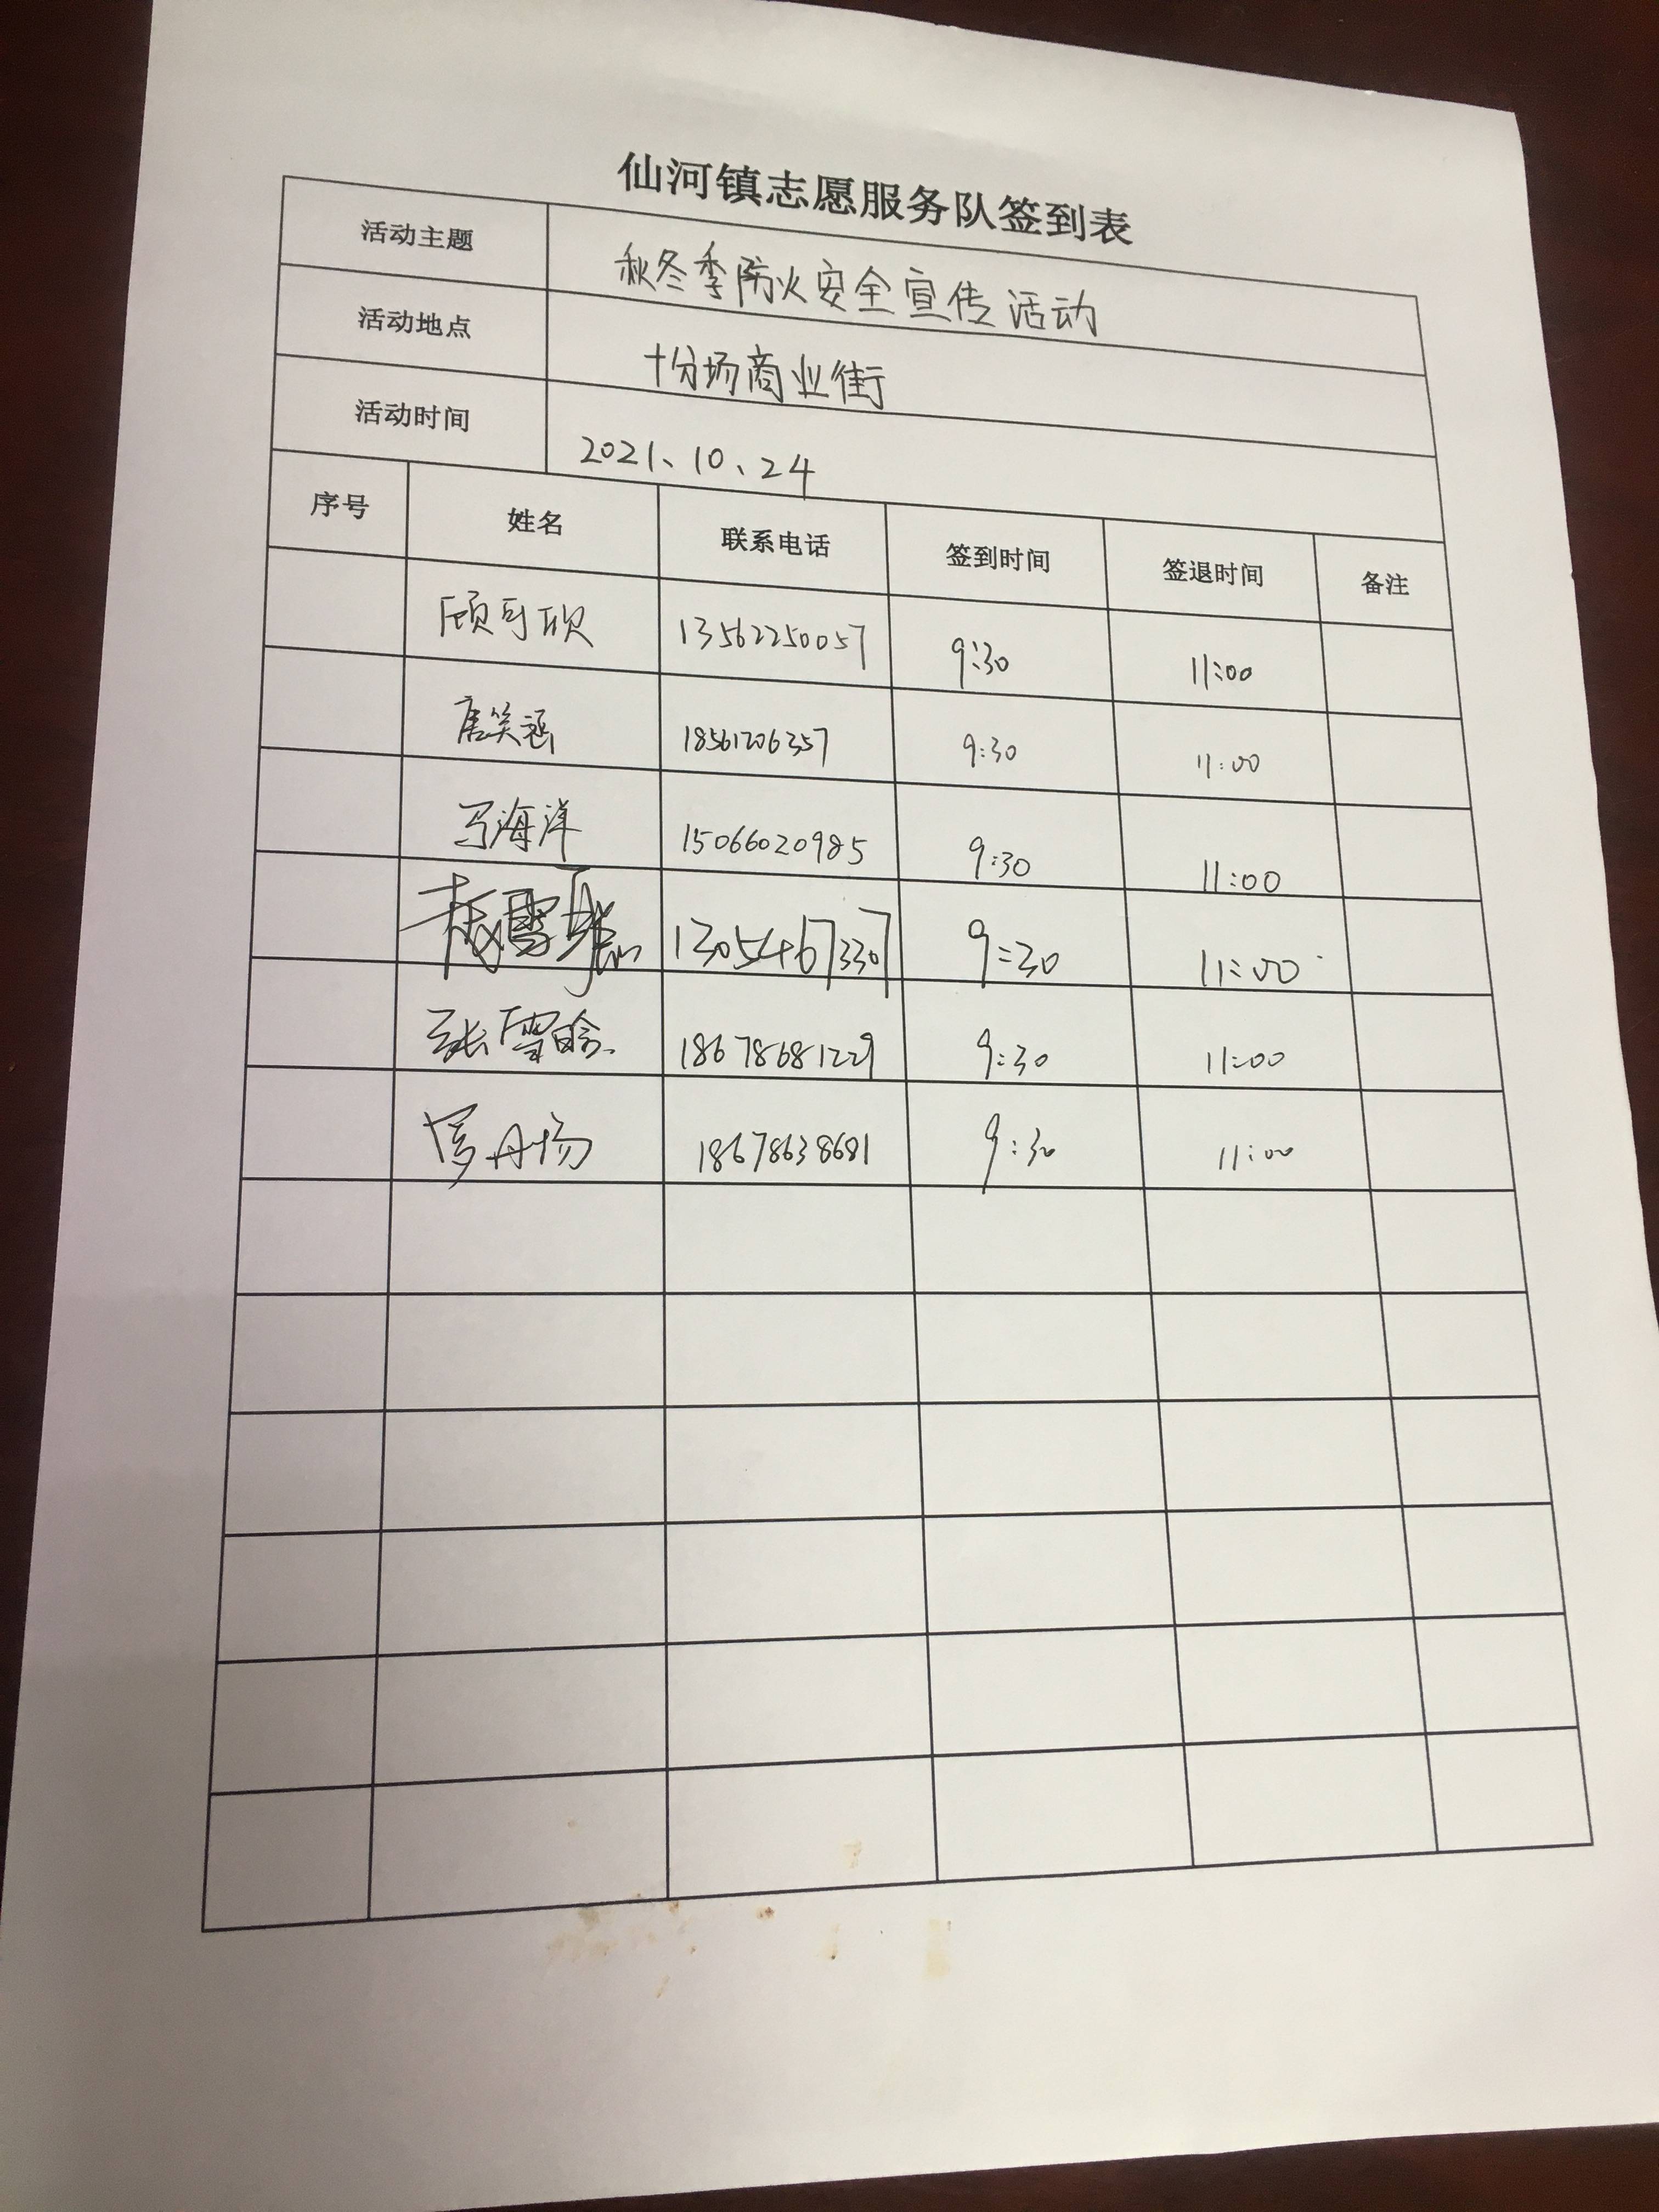 仙河镇志愿服务队签到表
活动主题 秋冬季防火安全宣传活动
活动地点 十分场商业街
活动时间 2021、10、24
序号 姓名 联系电话 签到时间 签退时间 备注
顾可欣 13562250057 9:30 11:00
唐笑涵 18561206357 9:30 11:00
马海洋 15066020985 9:30 11:00
13054673307 9:30 11:00
张雪晗 18678681229 9:30 11:00
18678638681 9:30 11:00